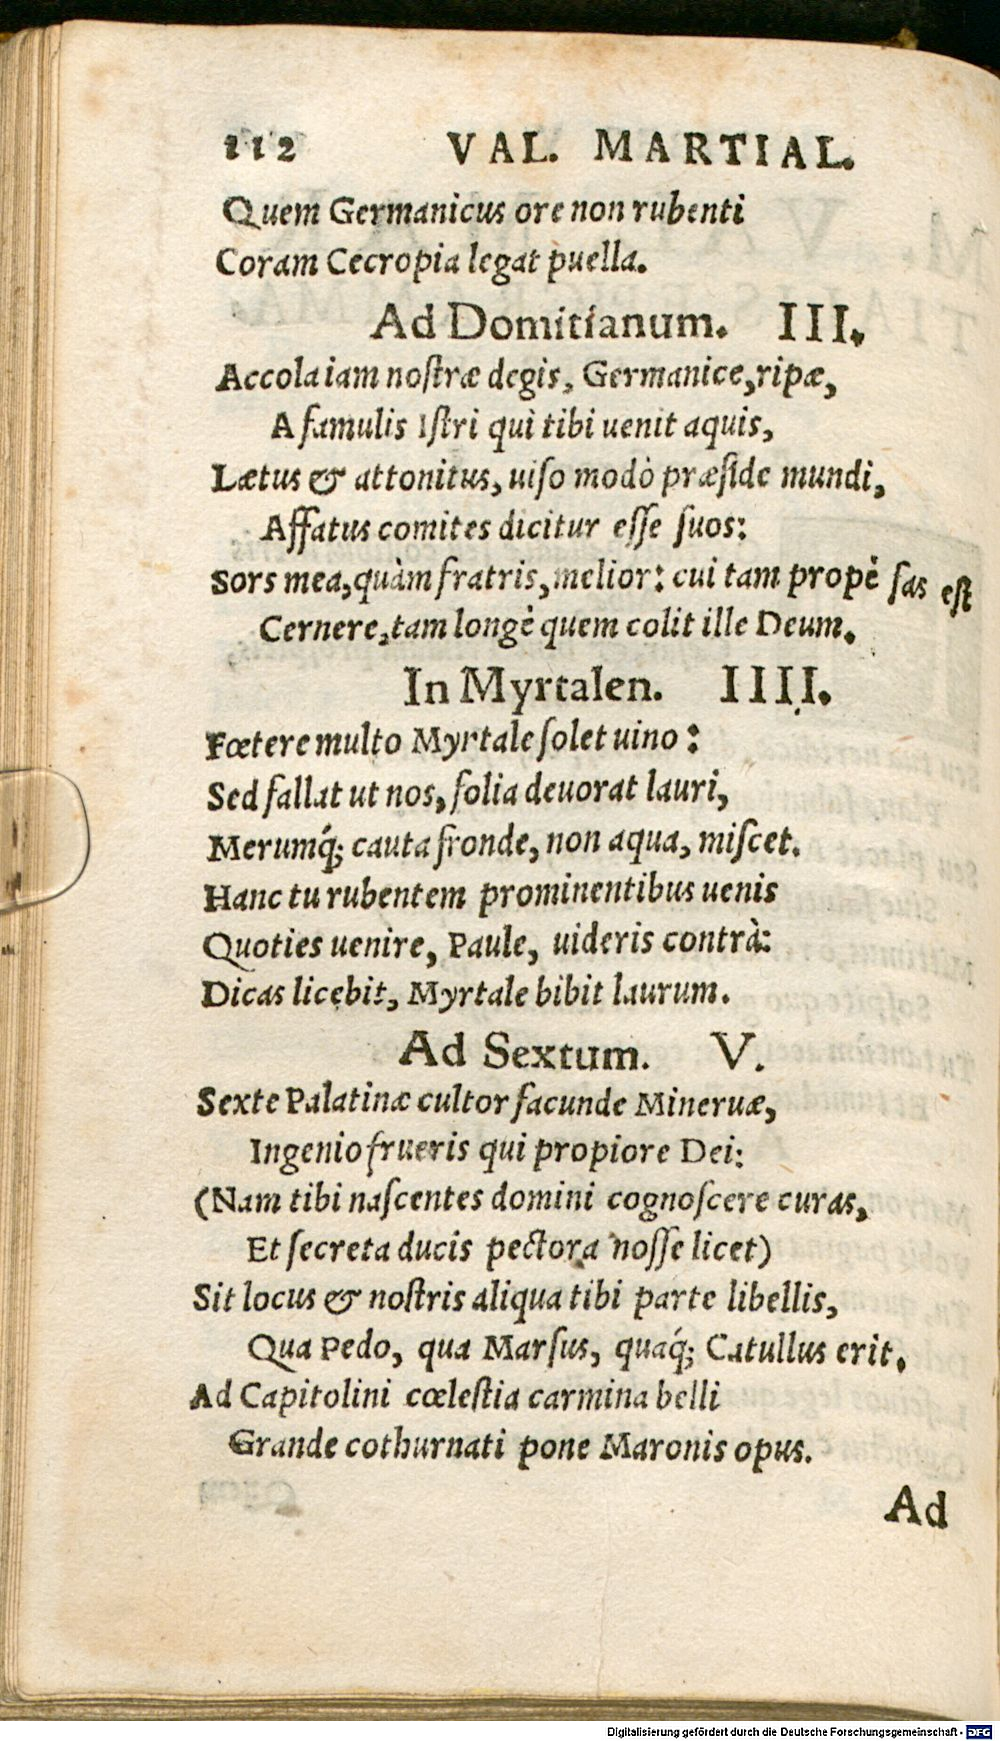 112 VAL. MARTIAL.
Quem Germanicus ore non rubenti
Coram Cecropia legat puella.
Ad Domitianum. III.
Accola iam noſtræ degis, Germanice, ripæ,
A famulis Iſtri qui tibi uenit aquis,
Lætus & attonitus, uiſo modò præſide mundi,
Affatus comites dicitur eſſe ſuos:
Sors mea, quàm fratris, melior: cui tam propè fas est
Cernere, tam longè quem colit ille Deum.
In Myrtalen. IIII.
Fœtere multo Myrtale ſolet uino:
Sed fallat ut nos, folia deuorat lauri,
Merumq́; cauta fronde, non aqua, miſcet.
Hanc tu rubentem prominentibus uenis
Quoties uenire, Paule, uideris contrà:
Dicas licebit, Myrtale bibit laurum.
Ad Sextum. V.
Sexte Palatinæ cultor facunde Mineruæ,
Ingenio frueris qui propiore Dei:
(Nam tibi naſcentes domini cognoſcere curas,
Et ſecreta ducis pectora noſſe licet)
Sit locus & noſtris aliqua tibi parte libellis,
Qua Pedo, qua Marſus, quaq́; Catullus erit.
Ad Capitolini cœleſtia carmina belli
Grande cothurnati pone Maronis opus.
Ad
Digitalisierung gefördert durch die Deutsche Forschungsgemeinschaft - DFG